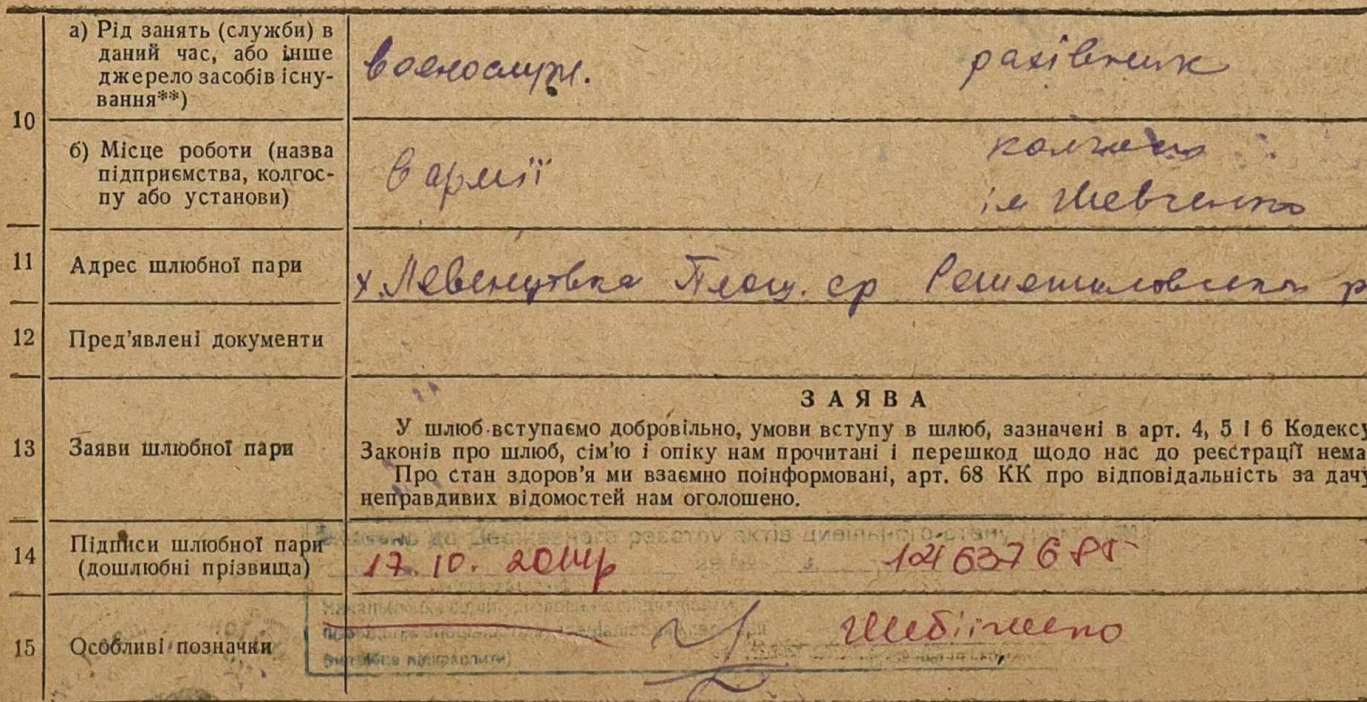 10
а) Рід занять (служби) в
даний час, або інше
джерело засобів існу-
вання**)
воєнослуж.
рахівник
б) Місце роботи (назва
підприємства, колгос-
пу або установи)
в армії
колгосп
ім Шевченко
11 Адрес шлюбної пари
х. Левенцовка Площ. ср Решетиловського р
12 Пред'явлені документи
13 Заяви шлюбної пари
ЗАЯВА
У шлюб вступаємо добровільно, умови вступу в шлюб, зазначені в арт. 4, 5 і 6 Кодексу
Законів про шлюб, сім'ю і опіку нам прочитані і перешкод щодо нас до реєстрації нема
Про стан здоров'я ми взаємно поінформовані, арт. 68 КК про відповідальність за дачу
неправдивих відомостей нам оголошено.
14 Підписи шлюбної пари
(дошлюбні прізвища)
17.10.2014р
15 Особливі позначки